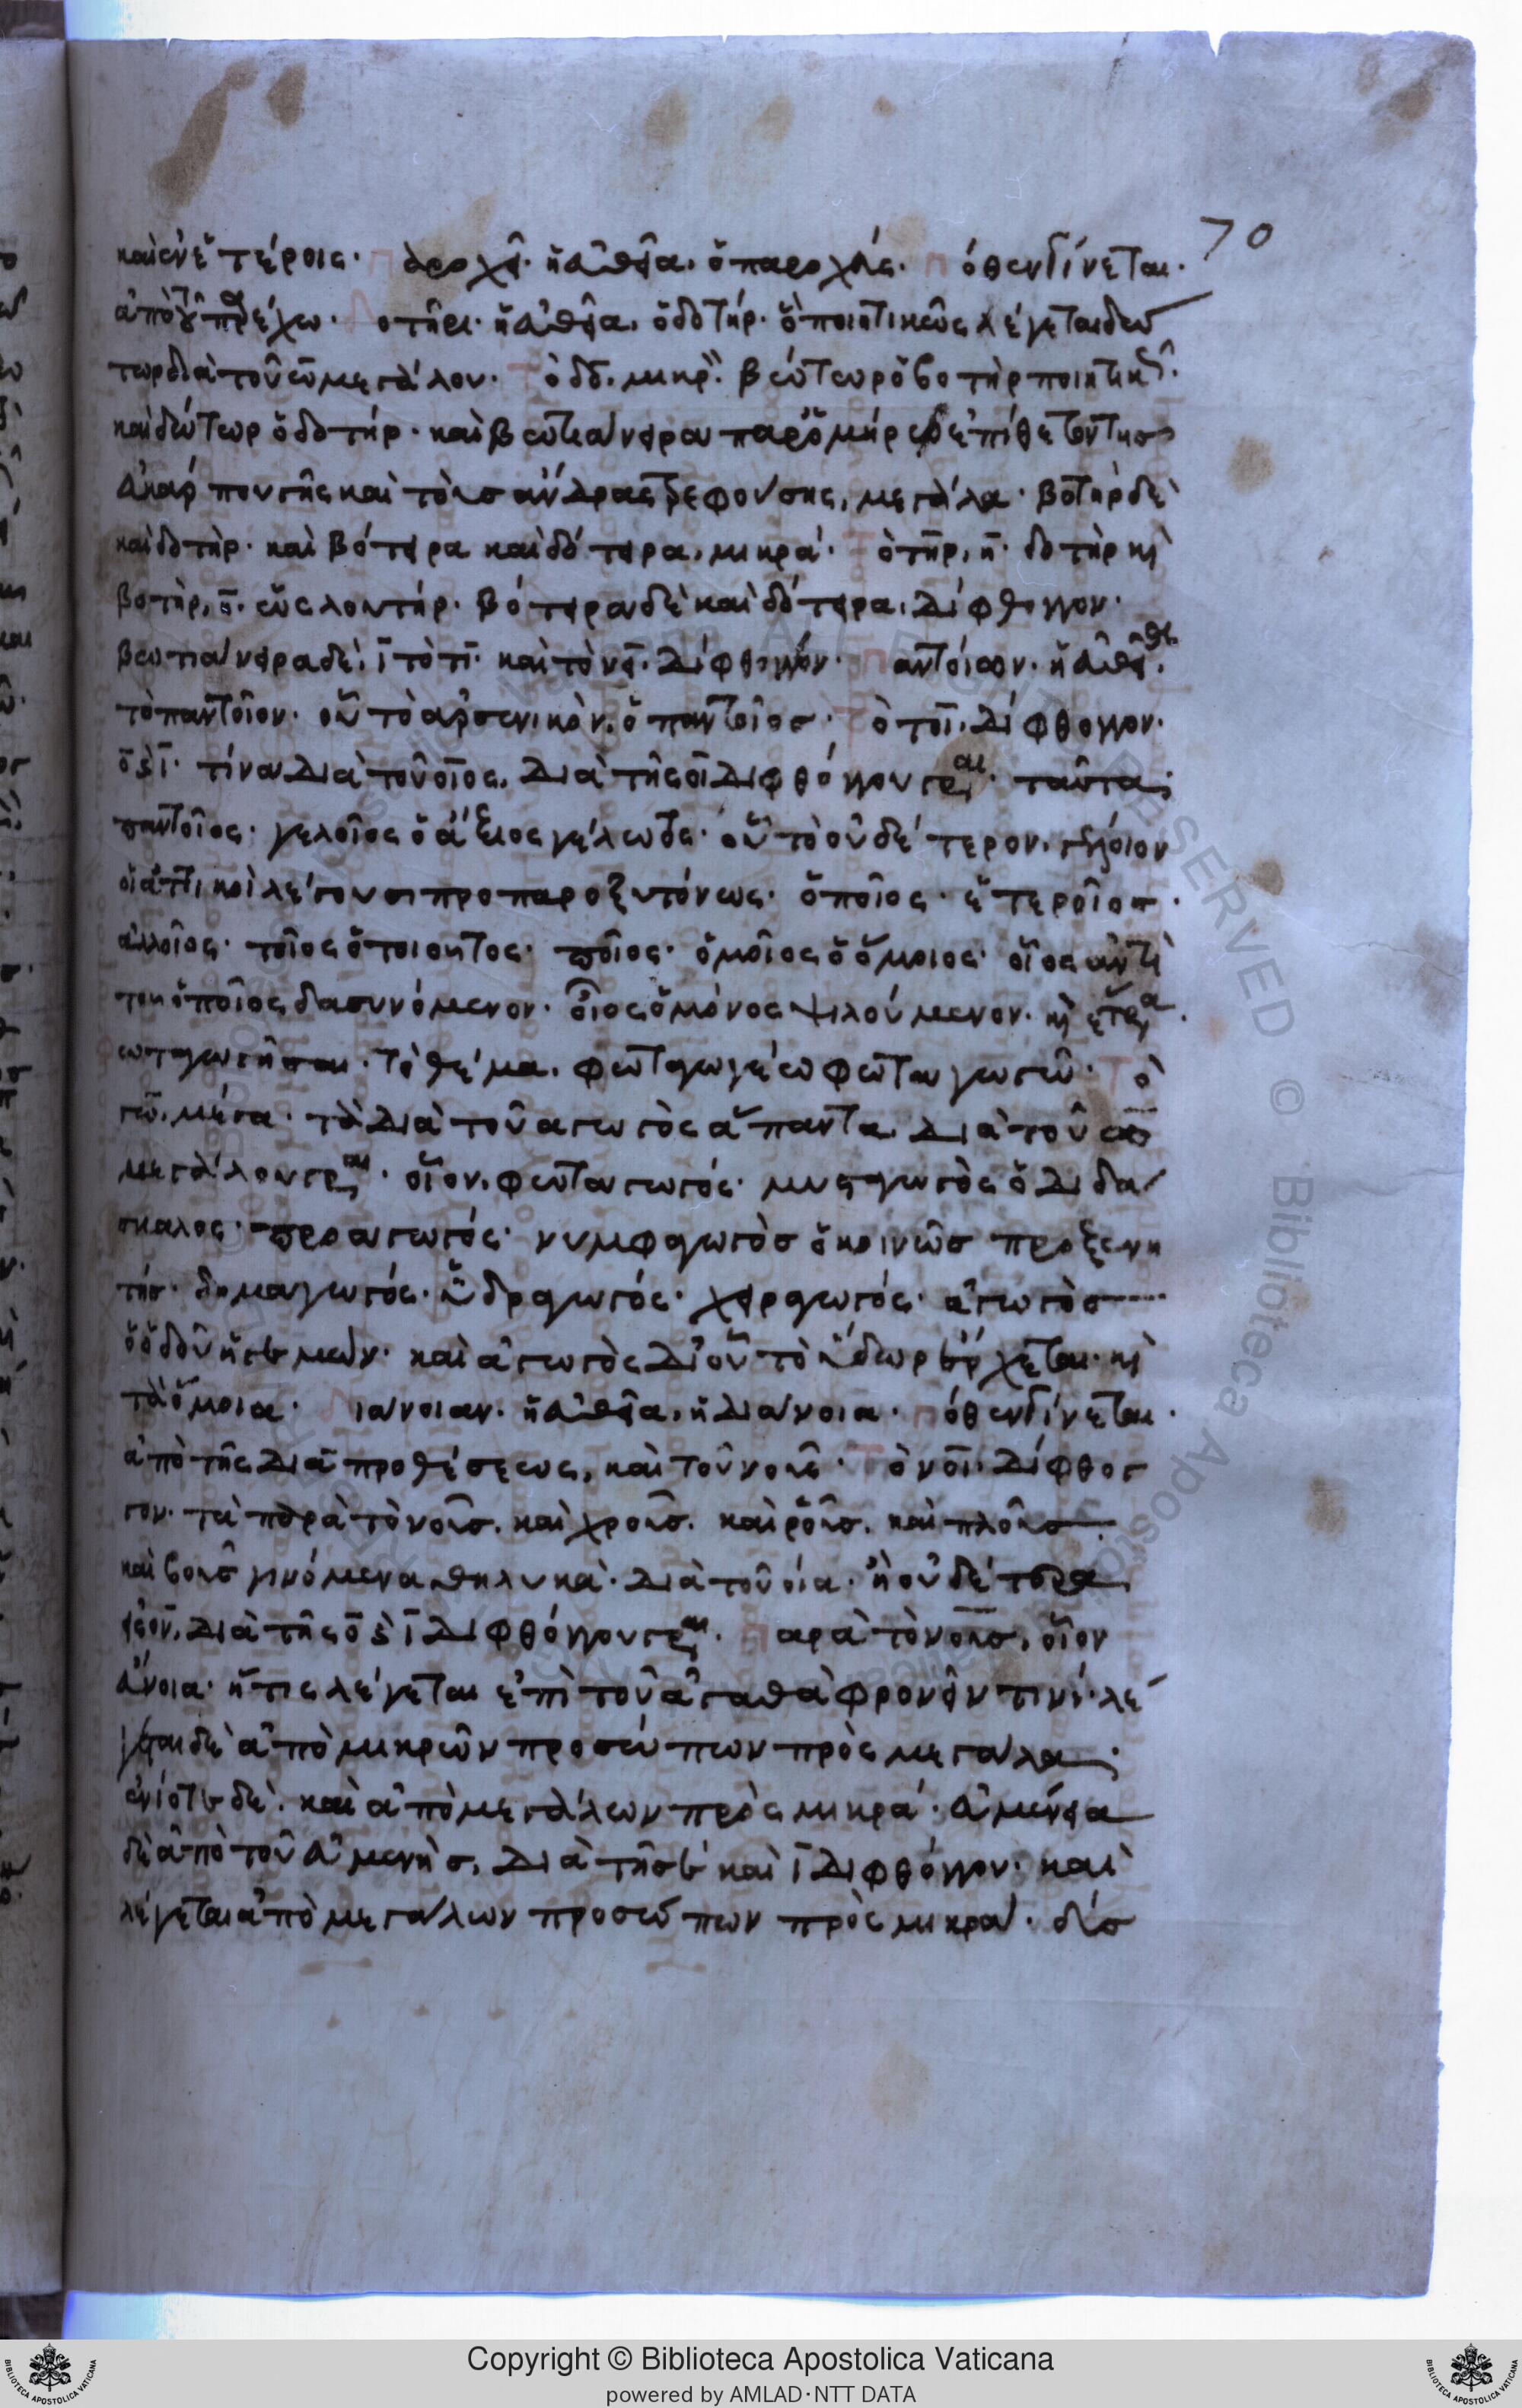 70
καὶ ἐν ἑτέροις· π ἡ εὐθεῖα, ὁ παροχεύς· πόθεν γίνεται·
ἀπὸ τοῦ παρέχω· δοτῆρι· ἡ εὐθεῖα, ὁ δοτήρ· ὁ ποιητικῶς λέγεται δώ
τωρ διὰ τοῦ ω μεγάλου· τὸ δο, μικρόν· βώτωρ ὁ βοτὴρ ποιητικῶς·
καὶ δώτωρ ὁ δοτήρ· καὶ βωτιάνειρα παρ' ὁμήρω ἐπίθετον τῆς
εὐκάρπου γῆς καὶ τοὺς ἄνδρας τρεφούσης, μεγάλα· βοτὴρ δὲ
καὶ δοτὴρ· καὶ βότειρα καὶ δότειρα, μικρά· τὸ τηρ, η· δοτὴρ καὶ
βοτὴρ, η· ὡς λουτήρ· βότειρα δὲ καὶ δότειρα, δίφθογγον·
βωτιάνειρα δὲ, ϊ τὸ τι· καὶ τὸ νει· δίφθογγον· παντοίων· ἡ εὐθεῖα
τὸ παντοῖον· οὗ τὸ ἀρσενικὸν, ὁ παντοῖος· τὸ τοι, δίφθογγον·
ο καὶ ι· τίνα διὰ τοῦ οῖος, διὰ τῆς οι διφθόγγου γράφεται· ταῦτα·
παντοῖος· γελοῖος ὁ ἄξιος γέλωτος· οὗ τὸ οὐδέτερον, γέλοιον
οἱ ἀττικοὶ λέγουσι προπαροξυτόνως· ὁποῖος· ἑτεροῖος·
ἀλλοῖος· τοῖος ὁ τοιοῦτος· ποῖος· ὁμοῖος ὁ ὅμοιος· οἷος ἀντὶ
τοῦ ὁποῖος δασυνόμενον· οἶος ὁ μόνος ψιλούμενον· καὶ ἕτερα·
φωταγωγῆσαι· τὸ θέμα, φωταγωγέω φωταγωγῶ· τὸ
γω, μέγα· τὰ διὰ τοῦ αγωγὸς ἅπαντα, διὰ τοῦ ω
μεγάλου γράφεται· οἷον, φωταγωγός· μυσταγωγὸς ὁ διδά
σκαλος· προαγωγός· νυμφαγωγὸς ὁ κοινῶς προξενη
τής· δημαγωγός· ὑδραγωγός· χειραγωγός· ἀγωγὸς
ὁ ὁδοῦ ἡγεμών· καὶ ἀγωγὸς δι' οὗ τὸ ὕδωρ ἔρχεται· καὶ
τὰ ὅμοια· διάνοιαν· ἡ εὐθεῖα, ἡ διάνοια· πόθεν γίνεται·
ἀπὸ τῆς διὰ προθέσεως, καὶ τοῦ νοῦς· τὸ νοι· δίφθογ
γον· τὰ παρὰ τὸ νοῦς, καὶ χροῦς, καὶ ῥοῦς, καὶ πλοῦς
καὶ βοῦς γινόμενα θηλυκὰ· διὰ τοῦ οία· ἢ οὐδέτερα
διὰ τῆς ο καὶ ι διφθόγγου γράφεται· παρὰ τὸ νοῦς, οἷον
εὔνοια· ἥτις λέγεται ἐπὶ τοῦ ἀγαθὰ φρονεῖν τινί· λέ
γεται δὲ ἀπὸ μικρῶν προσώπων πρὸς μεγάλα·
ἐνίοτε δὲ· καὶ ἀπὸ μεγάλων πρὸς μικρά· εὐμένεια
δὲ ἀπὸ τοῦ εὐμενὴς, διὰ τῆς ε καὶ ι διφθόγγου· καὶ
λέγεται ἀπὸ μεγάλων προσώπων πρὸς μικρά·
Copyright © Biblioteca Apostolica Vaticana
powered by AMLAD·NTT DATA